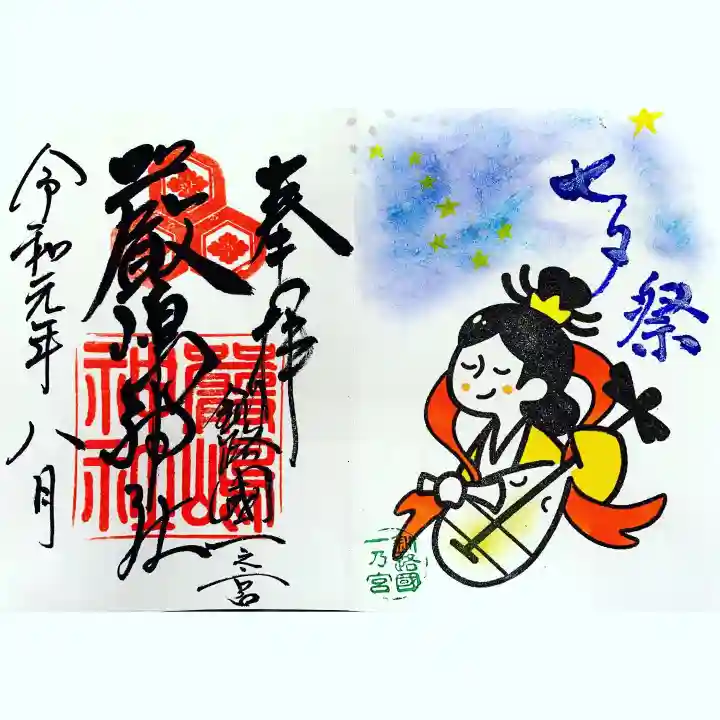 七夕
祭
奉拝
釧路國一之宮
厳島神社
嚴島
神社
令和元年八月
釧路國
一乃宮